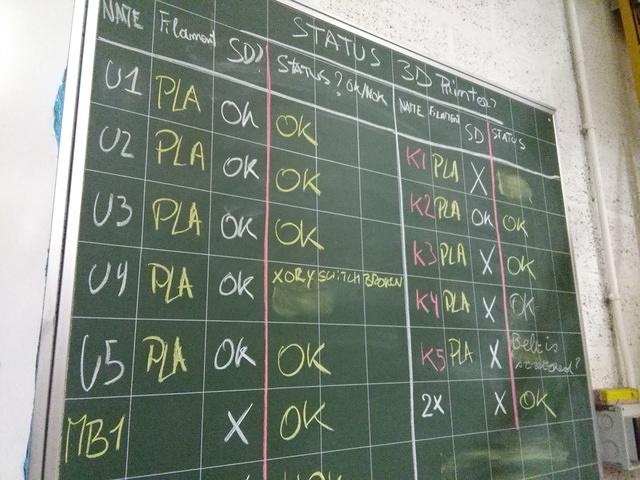 STATUS 3D Printer?
NAME Filament SD? STATUS? OK/NOK
U1 PLA OK OK
U2 PLA OK OK
U3 PLA OK OK
U4 PLA OK X OR Y SWITCH BROKEN
U5 PLA OK OK
MB1 X OK
NAME Filament SD STATUS
K1 PLA X
K2 PLA OK OK
K3 PLA X OK
K4 PLA X OK
K5 PLA X Belt is
2X X OK